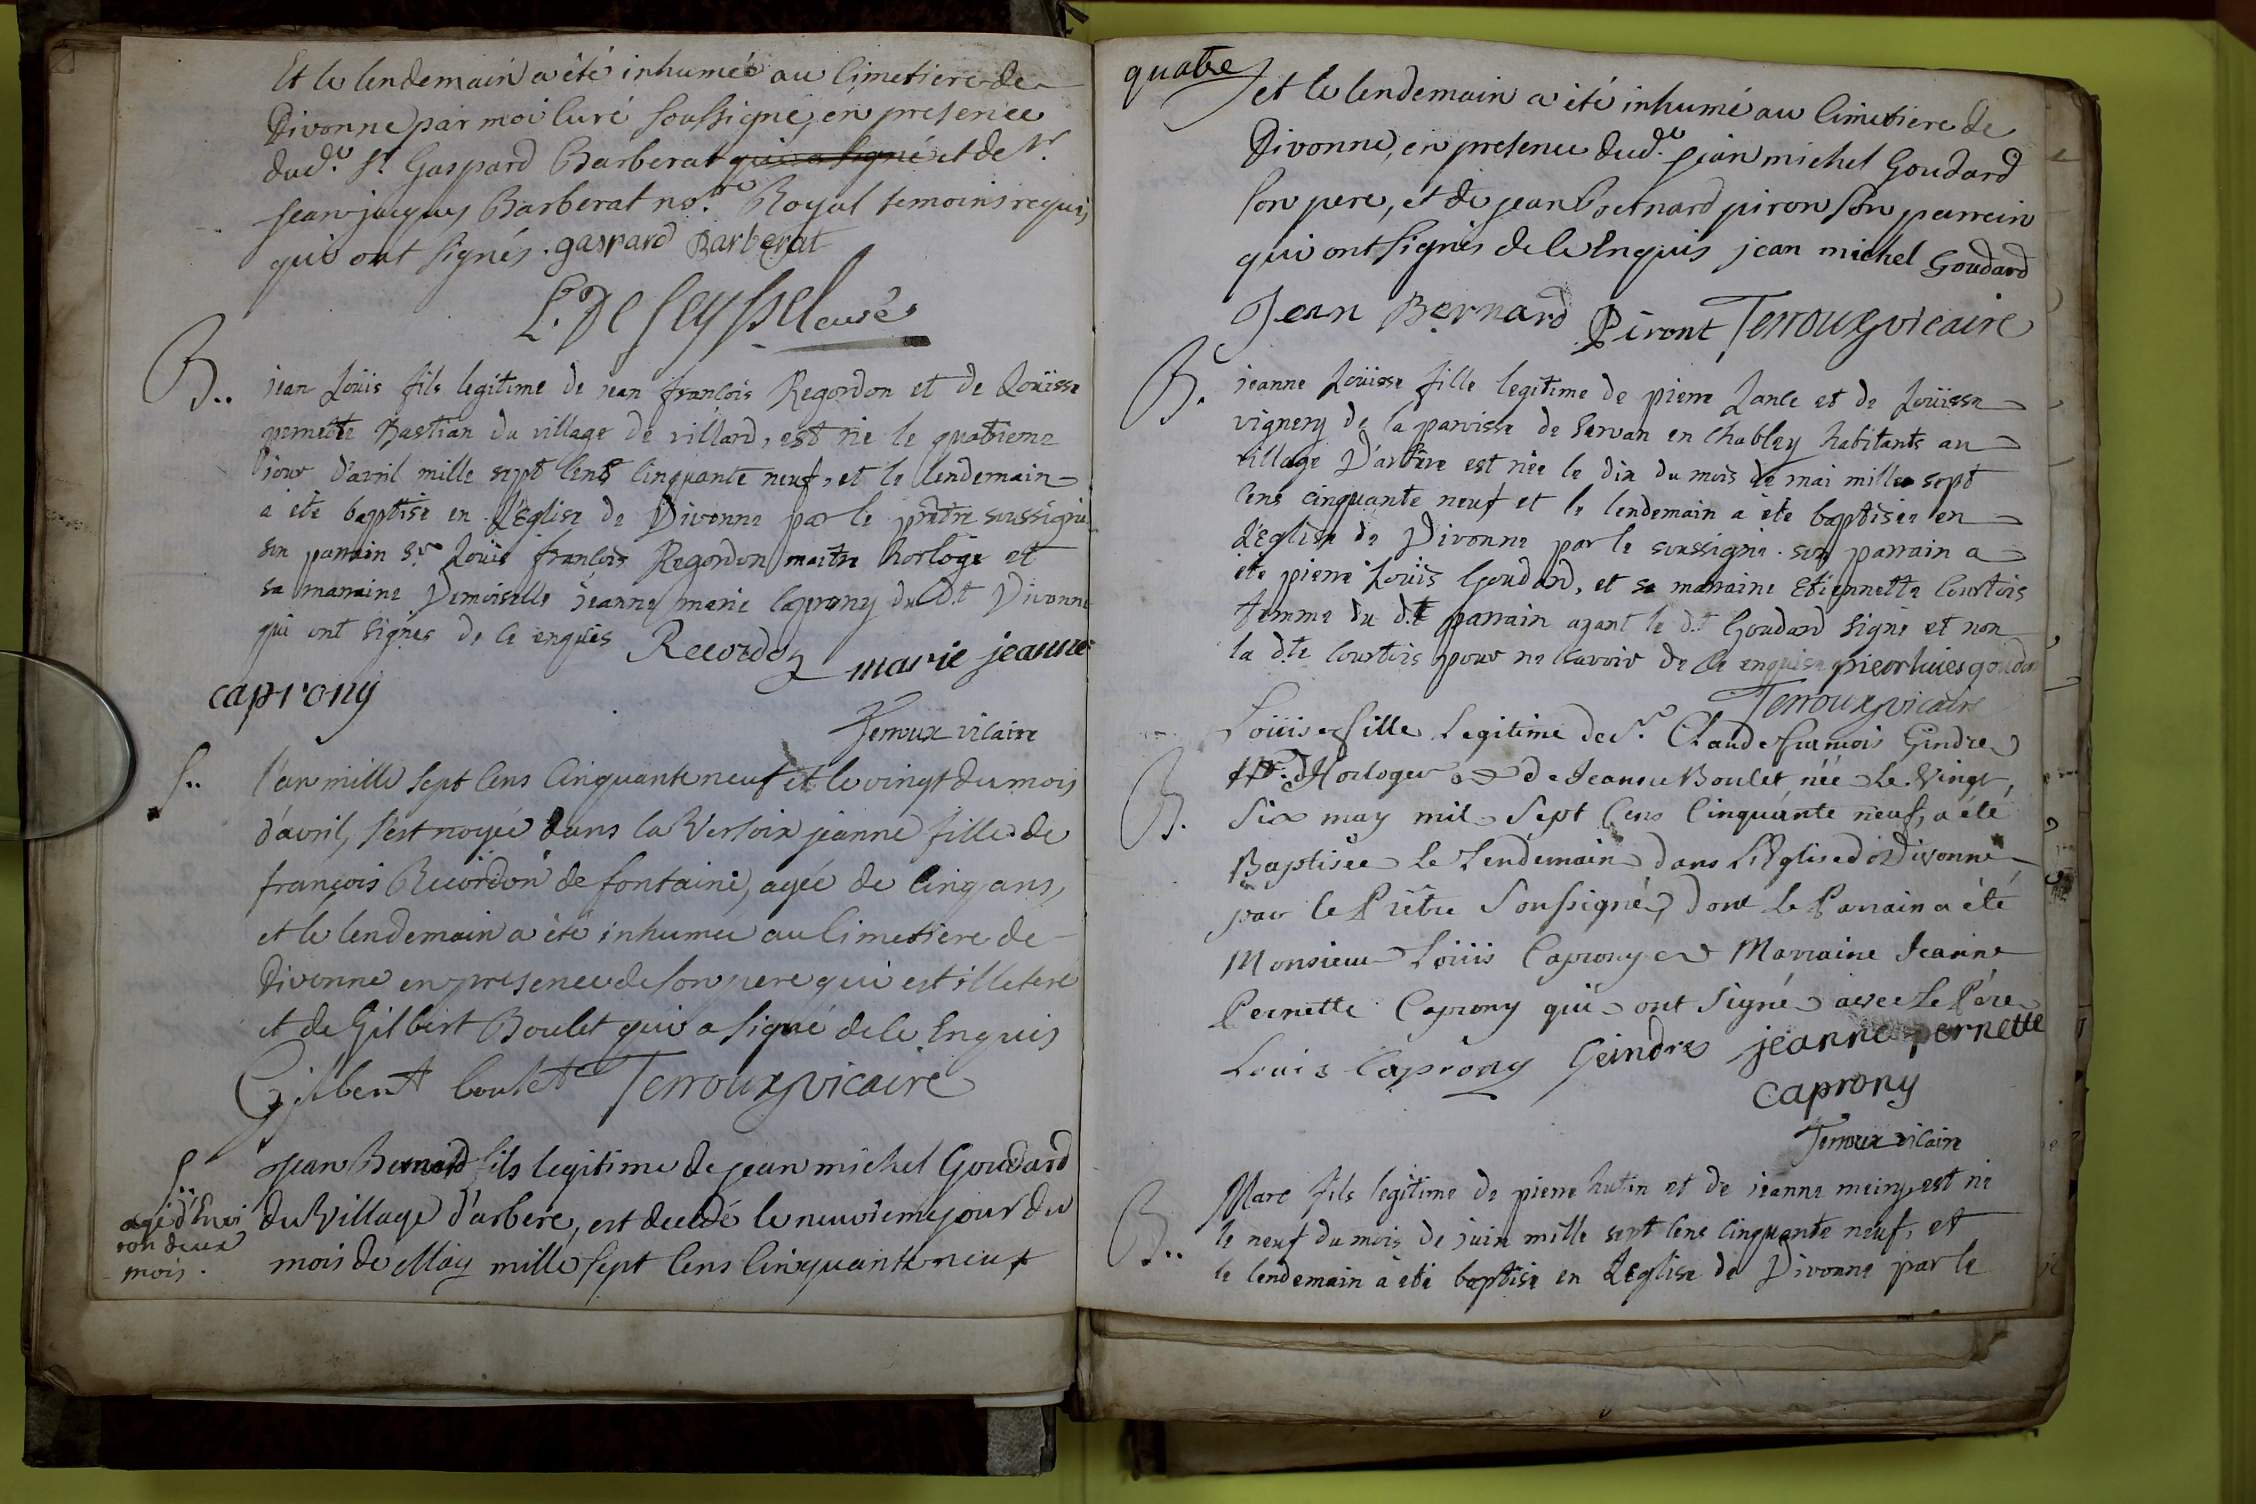 Et le lendemain a été inhumée au Cimetiere de
Divonne par moi Curé soussigné, en presence
dud.t Sr. Gaspard Barberat qui a signé et de Sr.
jean jaques Barberat no.re Royal temoins requis,
qui ont signés. gaspard Barberat
L. De Seyssel curé
B.. jean Loüis fils legitime de jean francois Regordon et de Loüisse
pernette Bastian du village de villard, est né le quatrieme
jour d'avril mille sept cens cinquante neuf, et le lendemain
a été baptisé en L'Eglise de Divonne par le prêtre soussigné
son parrain Sr. Loüis francois Regordon maitre horloge et
sa marraine Demoiselle jeanne marie Caprony du dt Divonne
qui ont signés de ce enquis Recordon marie jeanne
caprony
Terroux vicaire
S.. l'an mille sept cens cinquante neuf et le vingt du mois
d'avril, s'est noyée dans la Versoix jeanne fille de
françois Recordon de fontaine, agée de cinq ans,
et le lendemain a été inhumée au Cimetiere de
Divonne en presence de son pere qui est illeteré
et de Gilbert Boulet qui a signé de ce Enquis
Gilbert boulet Terroux vicaire
S.. Jean Bernard fils legitime de jean michel Goudard
agé d'Envi du Village d'arbere, est decedé le neuvieme jour du
ron deux
mois. mois de May mille sept cens cinquante neuf
quatre
et le lendemain a été inhumé au Cimetiere de
Divonne, en presence dud.t jean michel Goudard
son pere, et de jean bernard piron son parrein
qui ont signés de ce Enquis jean michel Goudard
Jean Bernard Piront Terroux vicaire
B. jeanne Loüisse fille legitime de pierre Lance et de Loüisse
vignery de la paroisse de Servan en Chabley habitants au
village D'arbere est née le dix du mois de mai mille sept
cens cinquante neuf et le lendemain a été baptisée en
L'Eglise de Divonne par le soussigné. son parrain a
été pierre Loüis Goudard, et sa marraine Etiennette Courtois
femme du d.t parrain ayant le d.t Goudard signé et non
la d.te Courtois pour ne savoir de ce enquise pieor luies goudar
Terroux vicaire
Loüise fille Legitime de Sr. Claude francois Gindre
B. Me. d'Horloger et de Jeanne Boulet née le vingt
six may mil sept cens cinquante neuf, a été
Baptisée le lendemain dans L'Eglise de Divonne,
par le Prêtre Soussigné, dont le Parrain a été
Monsieur Loüis Caprony et Marraine Jeanne
Pernette Caprony qui ont signé avec le Pére
Louis Caprony Geindre jeanne pernette
caprony
Terroux vicaire
B.. Marc fils legitime de pierre hutin et de jeanne meiry, est né
le neuf du mois de juin mille sept cens cinquante neuf, et
le lendemain a été baptisé en L'Eglise de Divonne par le